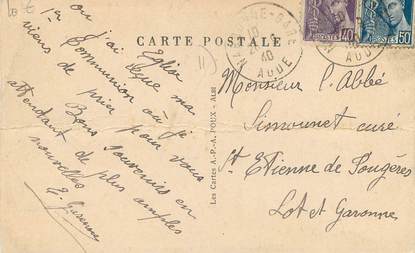 CARTE POSTALE
Église
où j'ai reçue ma
1re Communion où je
viens de prier pour vous
Bons souvenirs en
attendant de plus amples
nouvelles
E. Garenne
Les Cartes A.-P.-A. POUX - ALBI
GARE
AUDE
40
POSTES 40
50
AUDE
Monsieur l'Abbé
Simounet curé
St Etienne de Fougères
Lot et Garonne